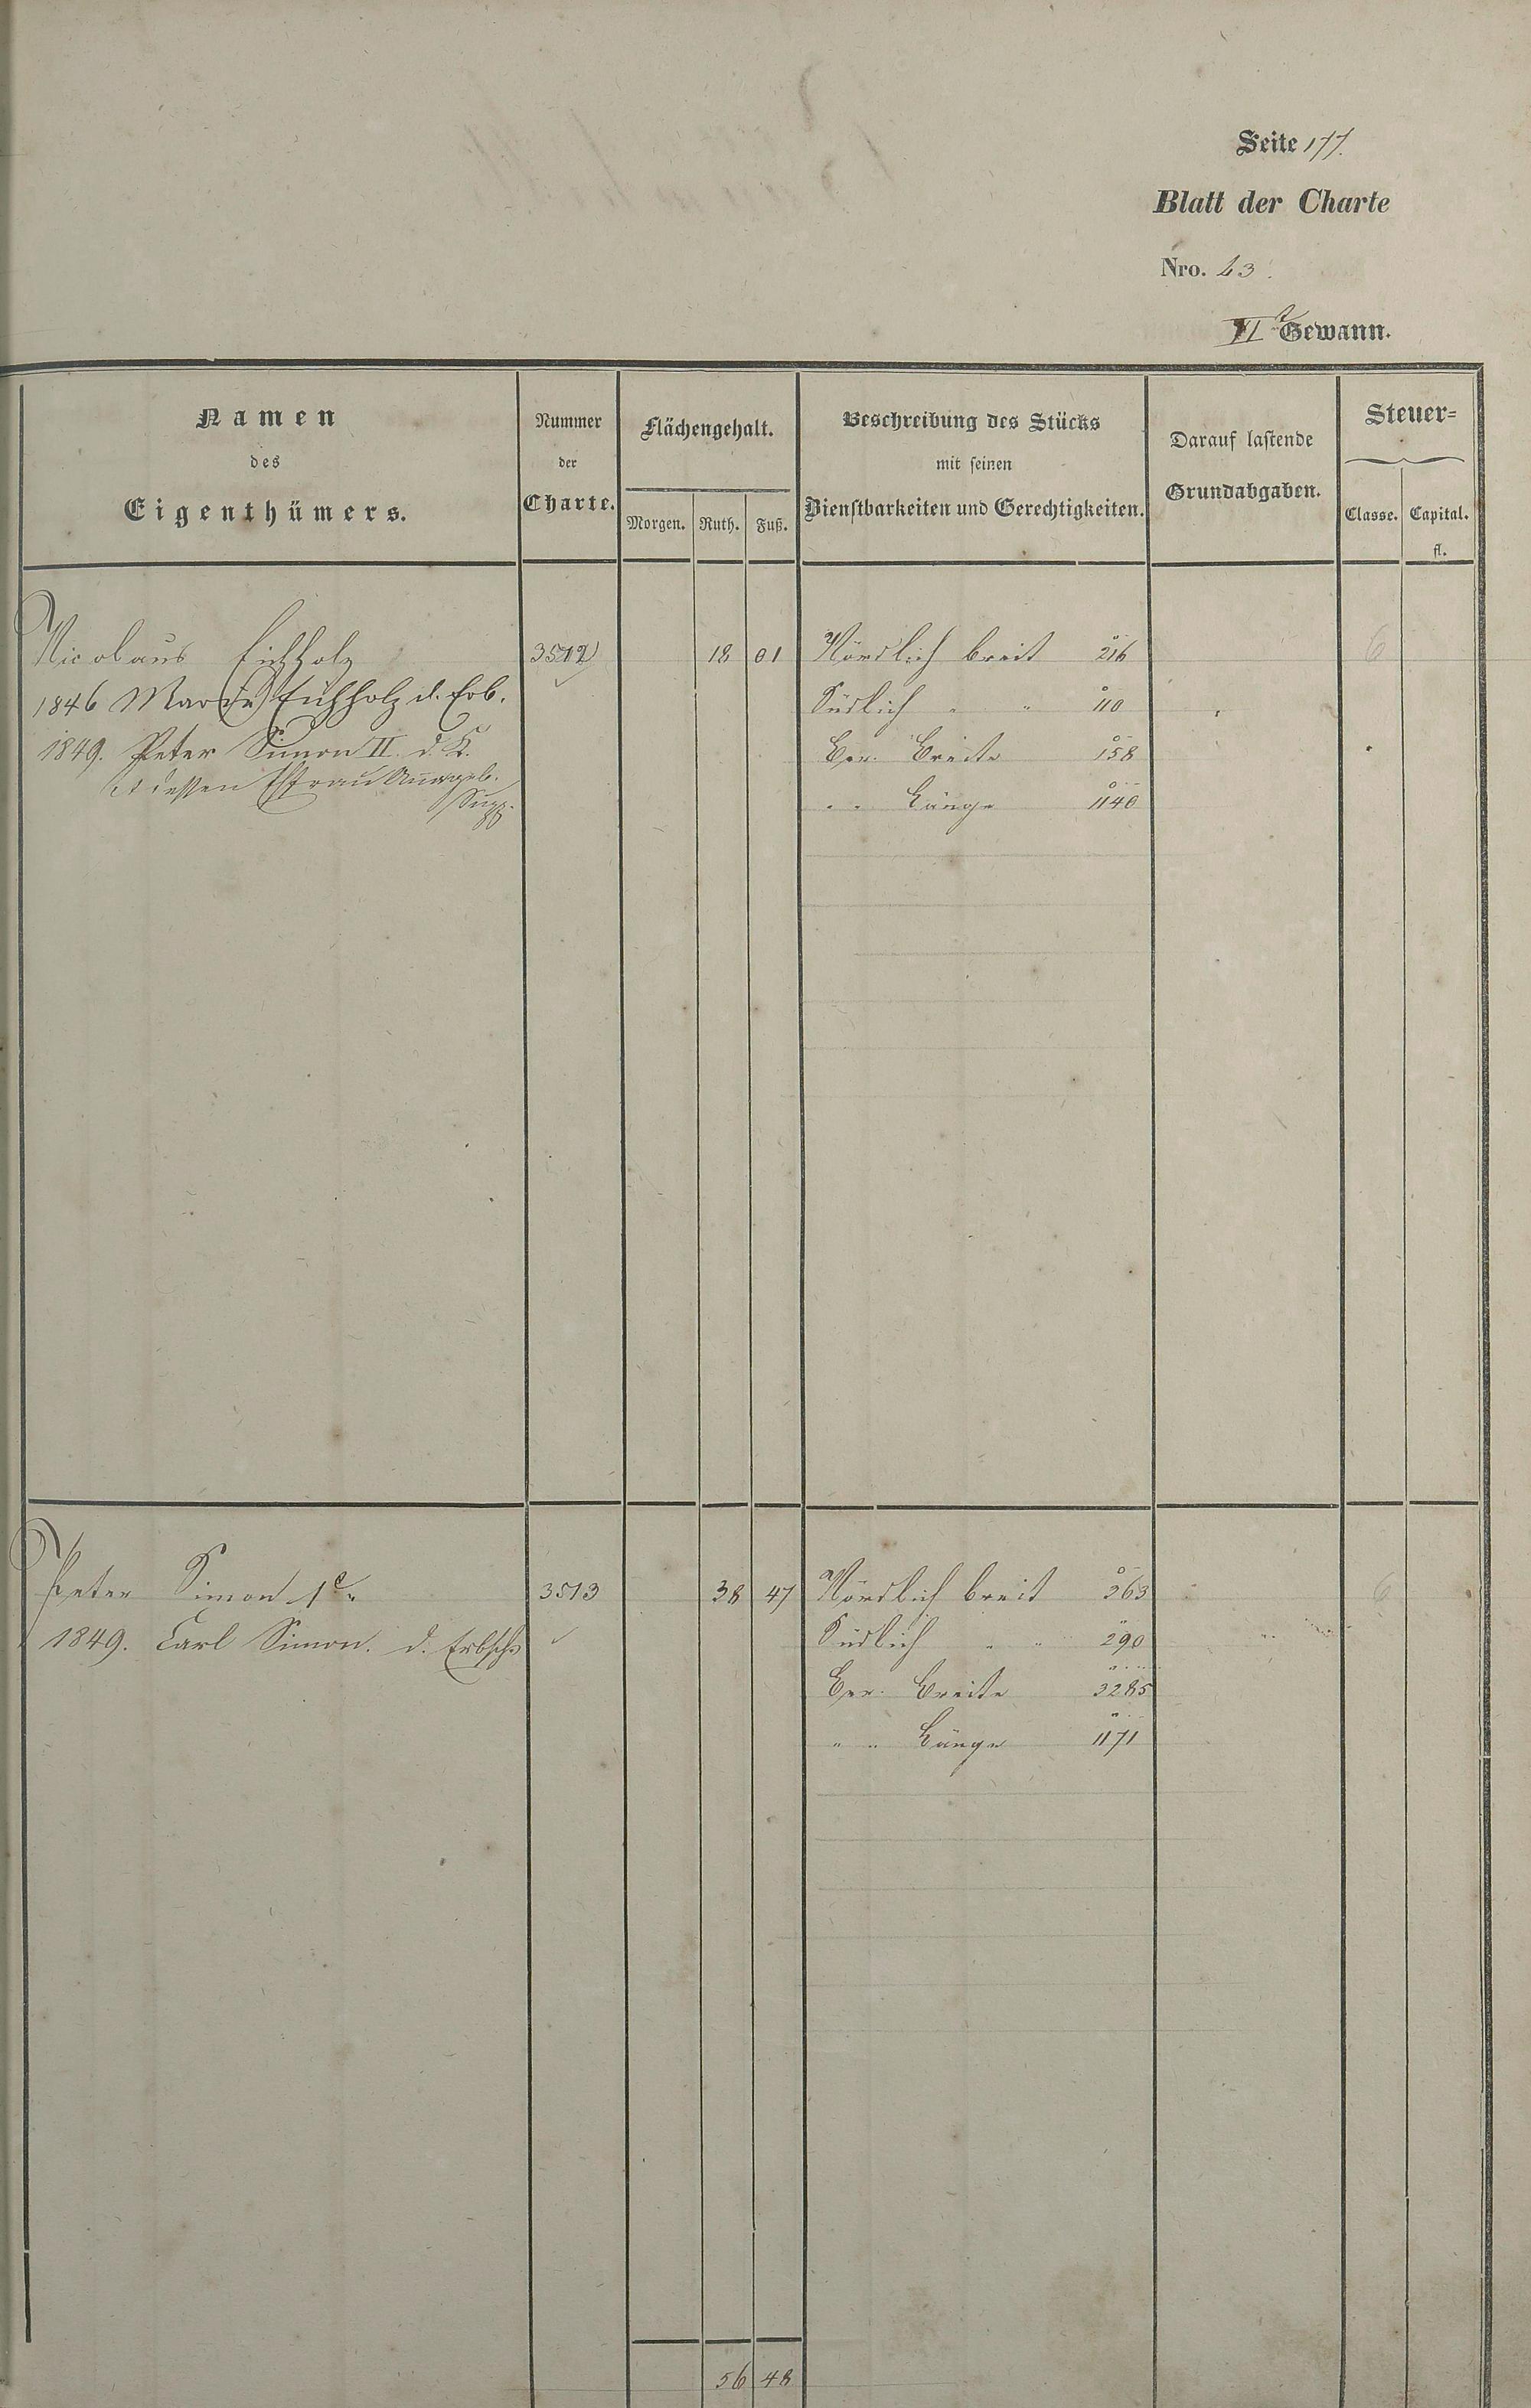 Seite 177.
Blatt der Charte
Nro. 23.
VI Gewann.
Namen des Eigenthümers.
Nummer der Charte.
Flächengehalt.
Morgen. Ruth. Fuß.
Beschreibung des Stücks mit seinen Dienstbarkeiten und Gerechtigkeiten.
Darauf lastende Grundabgaben.
Steuer-
Classe. Capital.
fl.
Nicolaus Eichholz 3512 18 01 Nördlich breit 216 6
1846 Maria Eichholz d. Erb. Südlich " " 110
1849. Peter Simon II. d. K. Ber. Breite 158
et dessen Ehfrau Anna geb. " " Länge 1140
Peter Simon 1r 3513 38 47 Nördlich breit 263 6
1849. Carl Simon. d. Erbsch. Südlich " " 290
Ber. Breite 3285
" " Länge 1171
56 48